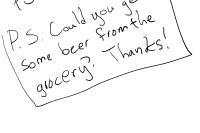 P.S. Could you
some beer from the
grocery? Thanks!